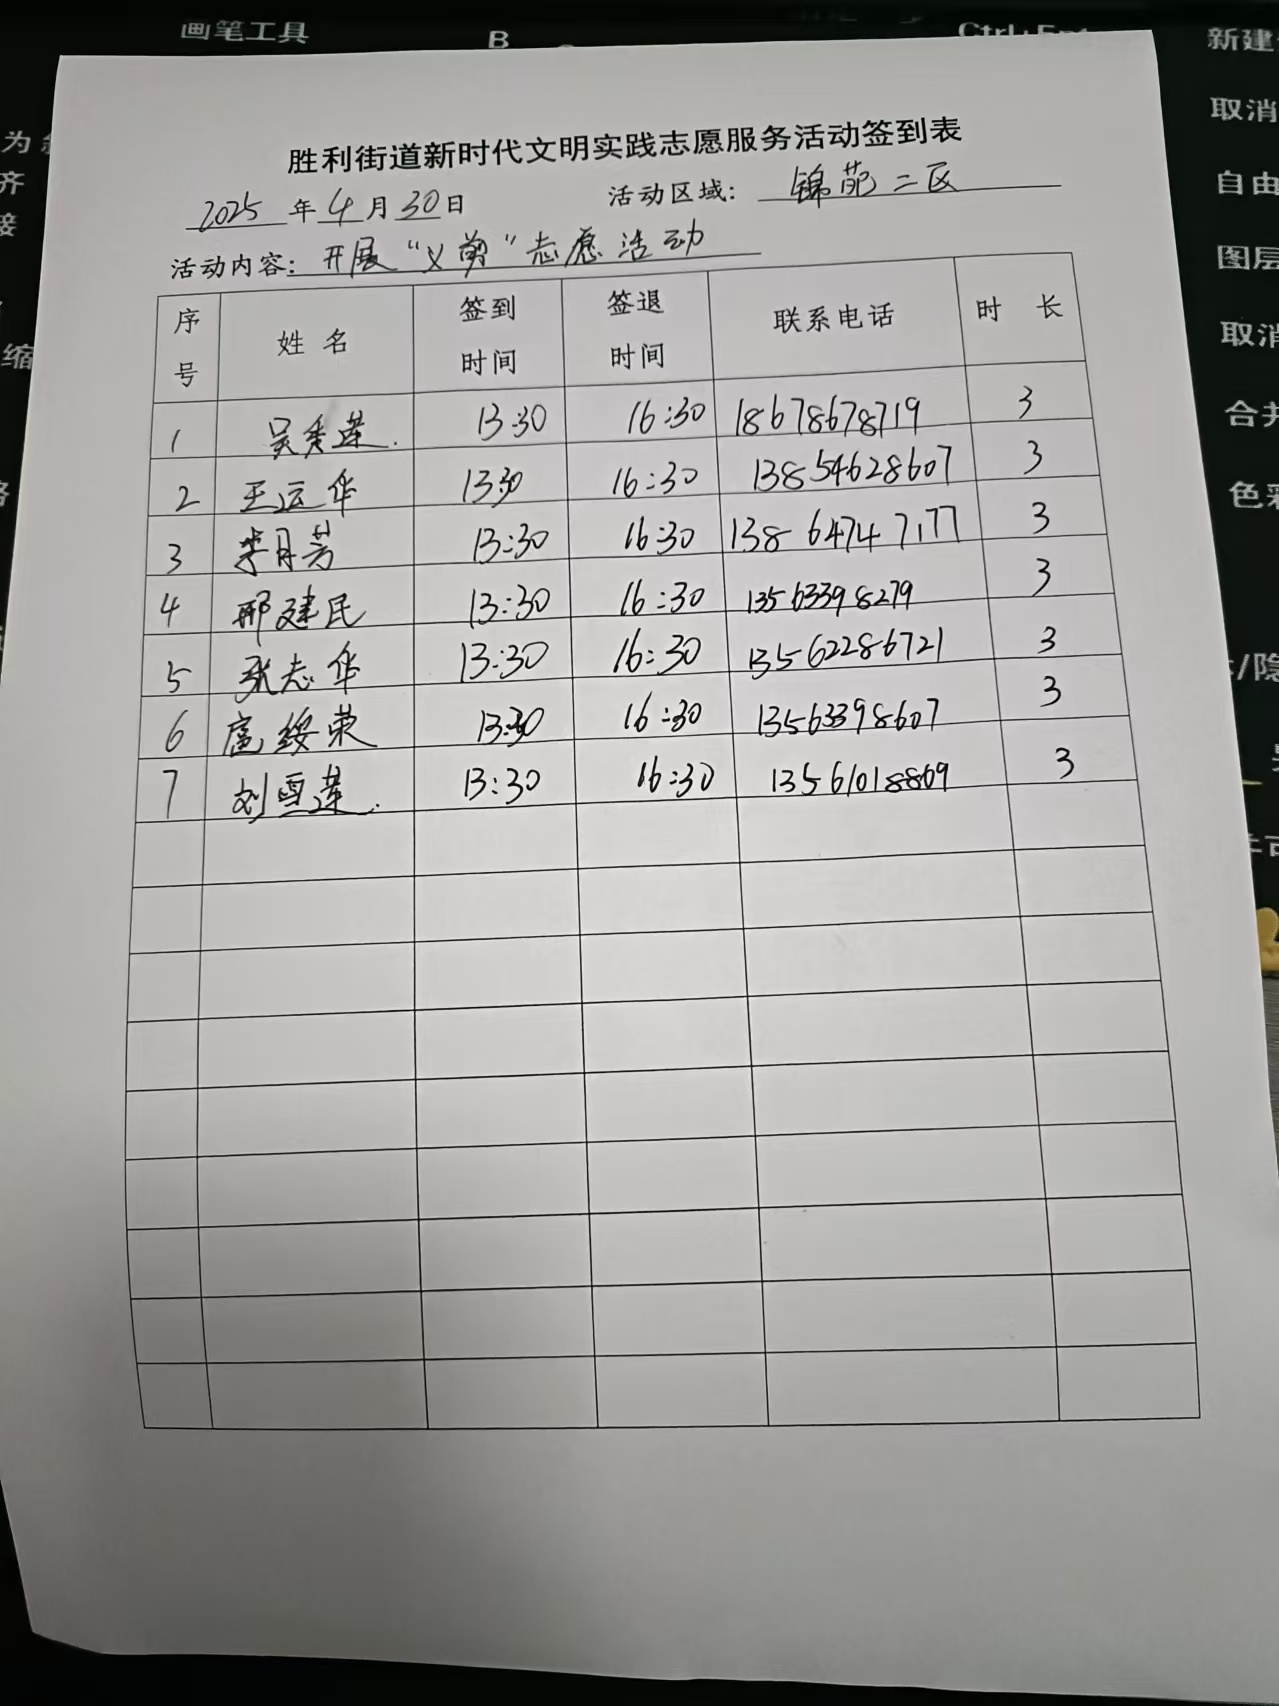 画笔工具
B
新建
取消
自由
图层
取消
合并
色彩
为
齐
接
缩
胜利街道新时代文明实践志愿服务活动签到表
2025年4月30日 活动区域：锦苑二区
活动内容：开展“义剪”志愿活动
序号 姓名 签到时间 签退时间 联系电话 时长
1 吴秀莲 13:30 16:30 18678678719 3
2 王运华 13:30 16:30 13854628607 3
3 李月芳 13:30 16:30 13864747177 3
4 邢建民 13:30 16:30 13563398279 3
5 张志华 13:30 16:30 13562286721 3
6 扈绥荣 13:30 16:30 13563398607 3
7 刘雪莲 13:30 16:30 13561018869 3